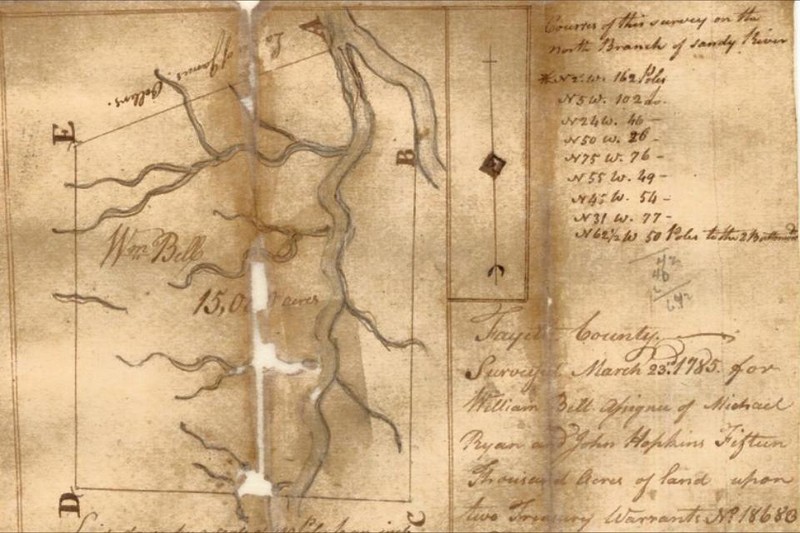 A
of James
E
B
Wm. Bell
15,0 acres
D
C
Courses of this survey on the
North Branch of Sandy River
N 2 W. 162 Poles
N 5 W. 102 do.
N 24 W. 46 -
N 50 W. 26 -
N 75 W. 76 -
N 55 W. 49 -
N 45 W. 54 -
N 31 W. 77 -
N 62 1/2 W 50 Poles to the 2
642
Fayet County
Surveyed March 23rd. 1785. for
William Bell Assignee of Michael
Ryan and John Hopkins Fifteen
Thousand Acres of land upon
two Treasury Warrants No. 18680